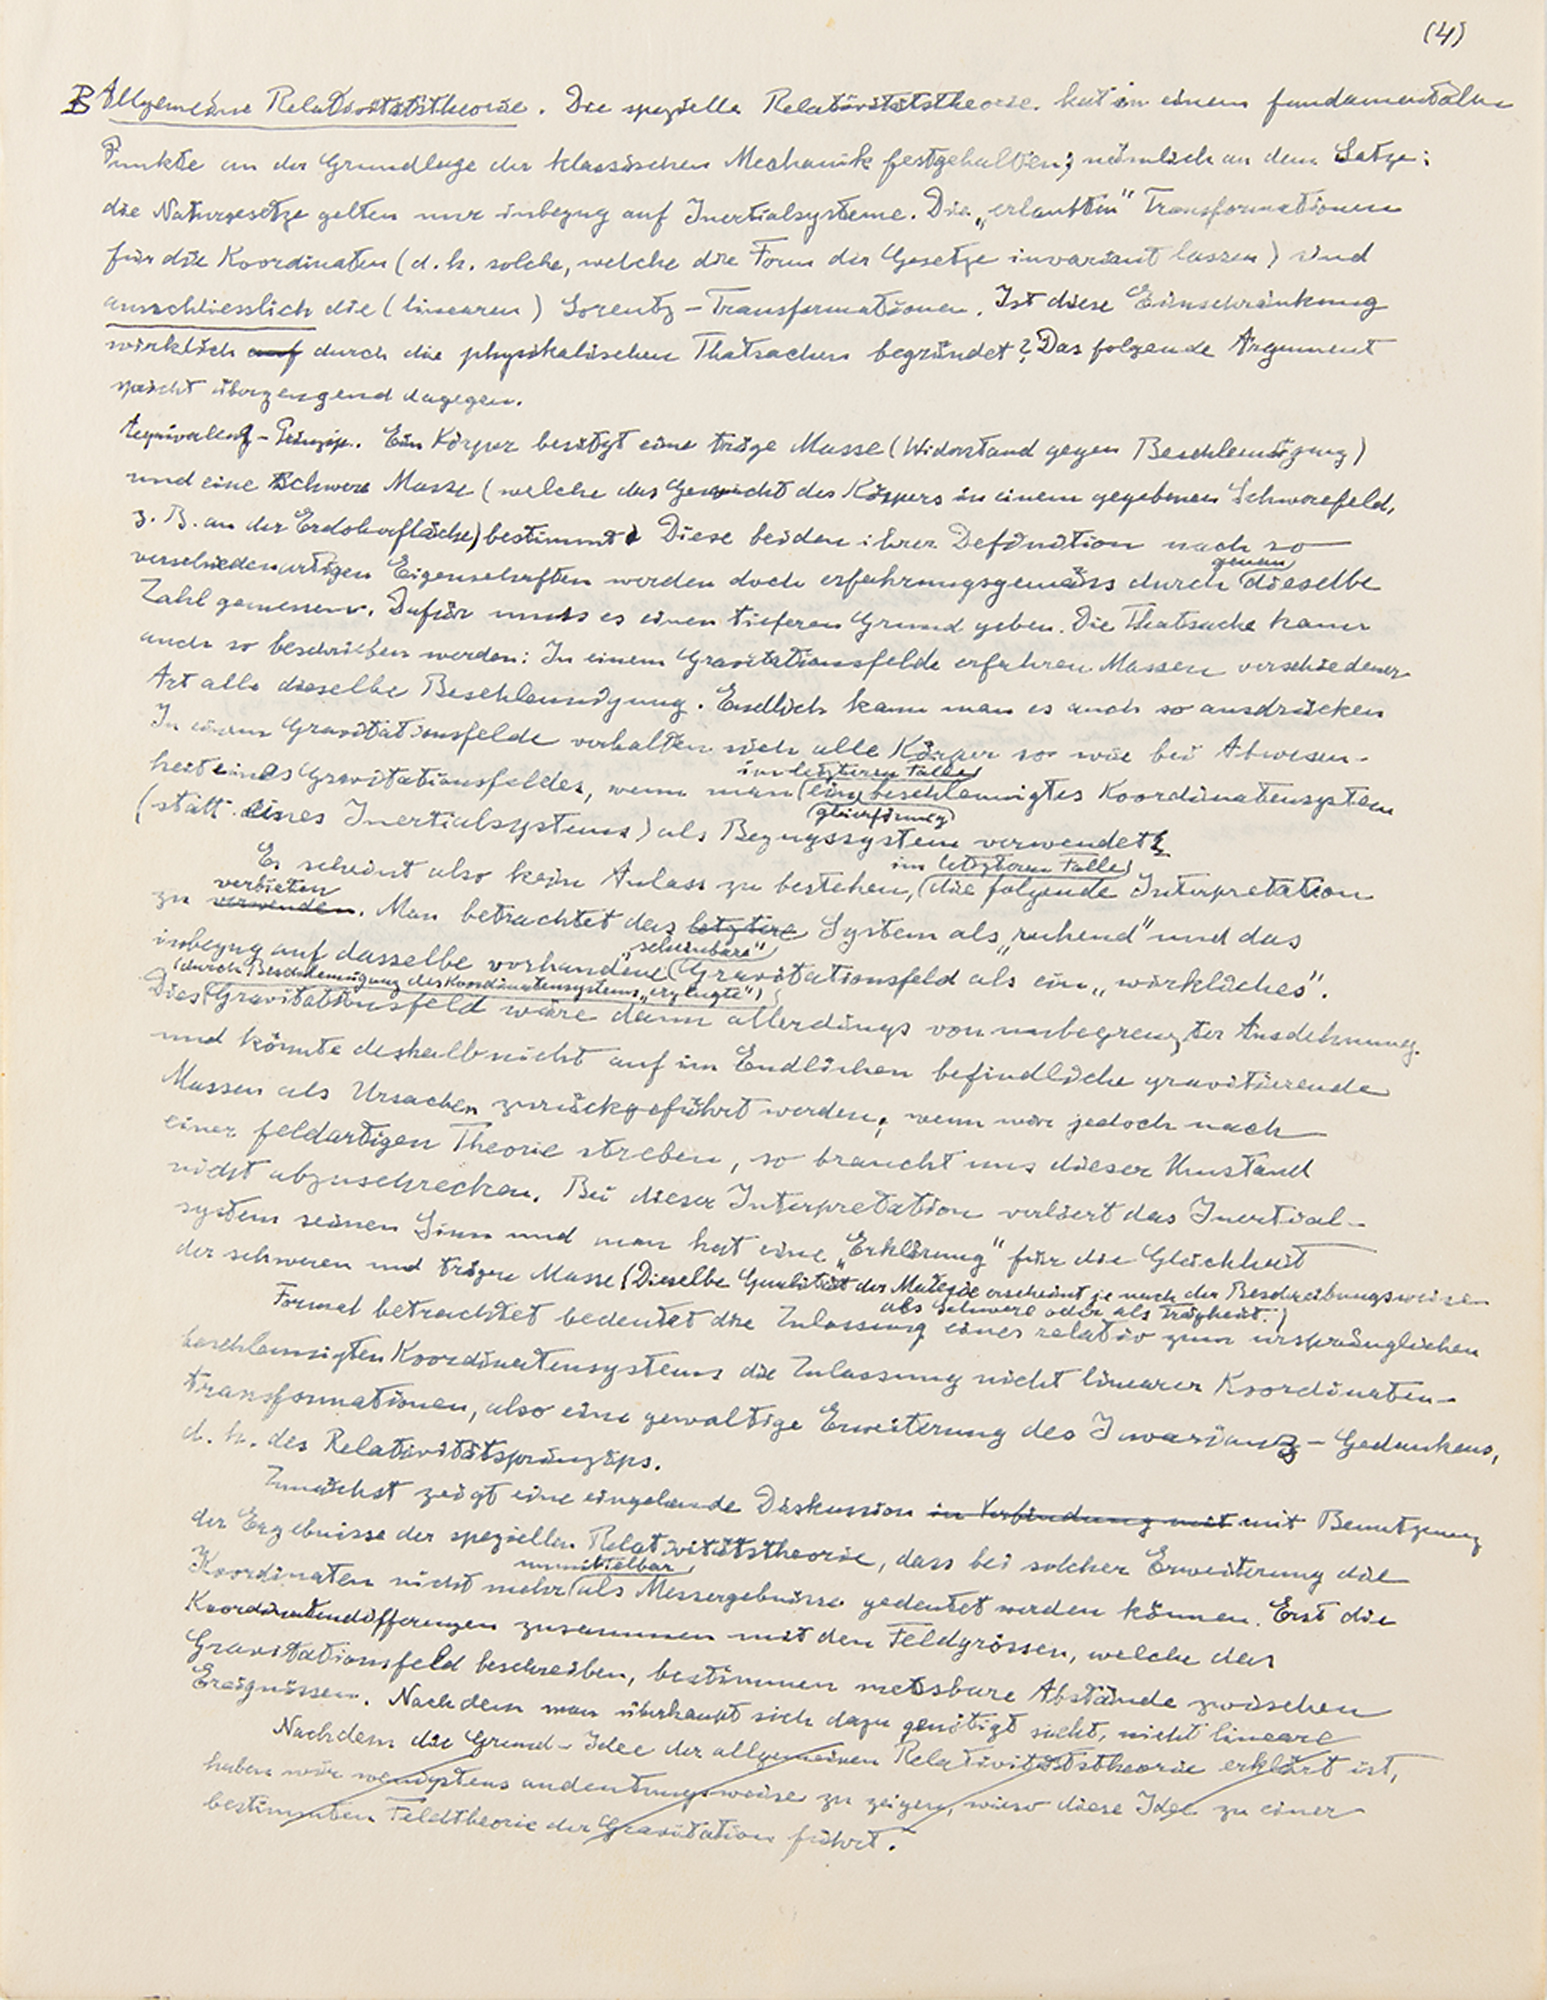 (4)
B Allgemeine Relativitätstheorie. Die spezielle Relativitätstheorie hat in einem fundamentalen
Punkte an der Grundlage der klassischen Mechanik festgehalten, nämlich an dem Satze:
die Naturgesetze gelten nur inbezug auf Inertialsysteme. Die „erlaubten" Transformationen
für die Koordinaten (d. h. solche, welche die Form der Gesetze invariant lassen) sind
ausschliesslich die (linearen) Lorentz-Transformationen. Ist diese Einschränkung
wirklich auf durch die physikalischen Thatsachen begründet? Das folgende Argument
spricht überzeugend dagegen.
Aequivalenz-Prinzip. Ein Körper besitzt eine träge Masse (Widerstand gegen Beschleunigung)
und eine schwere Masse (welche das Gewicht des Körpers in einem gegebenen Schwerefeld,
z. B. an der Erdoberfläche) bestimmt. Diese beiden ihrer Definition nach so
genau
verschiedenartigen Eigenschaften werden doch erfahrungsgemäss durch dieselbe
Zahl gemessen. Dafür muss es einen tieferen Grund geben. Die Thatsache kann
auch so beschrieben werden: In einem Gravitationsfelde erfahren Massen verschiedener
Art alle dieselbe Beschleunigung. Endlich kann man es auch so ausdrücken
In einem Gravitationsfelde verhalten sich alle Körper so wie bei Abwesen-
im letzteren Falle
heit eines Gravitationsfeldes, wenn man ein beschleunigtes Koordinatensystem
(gleichförmig)
(statt eines Inertialsystems) als Bezugssystem verwendet.
im letzteren Falle
Es scheint also kein Anlass zu bestehen, die folgende Interpretation
verbieten
zu verwenden. Man betrachtet das letztere System als „ruhend" und das
„scheinbare"
inbezug auf dasselbe vorhandene Gravitationsfeld als ein „wirkliches".
(durch Beschleunigung des Koordinatensystems „erzeugte")
Dies Gravitationsfeld wäre dann allerdings von unbegrenzter Ausdehnung
und könnte deshalb nicht auf im Endlichen befindliche gravitierende
Massen als Ursachen zurückgeführt werden, wenn wir jedoch nach
einer feldartigen Theorie streben, so braucht uns dieser Umstand
nicht abzuschrecken. Bei dieser Interpretation verliert das Inertial-
system seinen Sinn und man hat eine „Erklärung" für die Gleichheit
der schweren und trägen Masse (Dieselbe Qualität der Materie erscheint je nach der Beschreibungsweise
als Schwere oder als Trägheit.)
Formal betrachtet bedeutet die Zulassung eines relativ zum ursprünglichen
beschleunigten Koordinatensystems die Zulassung nicht linearer Koordinaten-
transformationen, also eine gewaltige Erweiterung des Invarianz-Gedankens,
d. h. des Relativitätsprinzips.
Zunächst zeigt eine eingehende Diskussion in Verbindung mit mit Benutzung
der Ergebnisse der speziellen Relativitätstheorie, dass bei solcher Erweiterung die
unmittelbar
Koordinaten nicht mehr als Messergebnisse gedeutet werden können. Erst die
Koordinatendifferenzen zusammen mit den Feldgrössen, welche das
Gravitationsfeld beschreiben, bestimmen messbare Abstände zwischen
Ereignissen. Nachdem man überhaupt sich dazu genötigt sieht, nicht lineare
Nachdem die Grund-Idee der allgemeinen Relativitätstheorie erklärt ist,
haben wir wenigstens andeutungsweise zu zeigen, wieso diese Idee zu einer
bestimmten Feldtheorie der Gravitation führt.